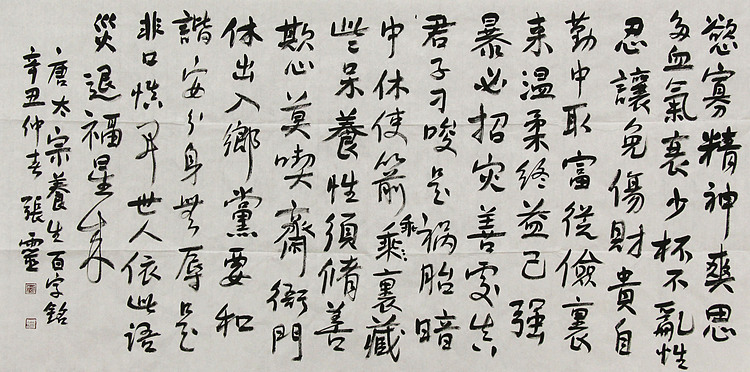 慾寡精神爽思
多血氣衰少杯不亂性
忍讓免傷財貴自
勤中取富從儉裏
来温柔終益己强
暴必招灾善處真
君子刁唆是祸胎暗
中休使箭乘裏藏
些呆養性須脩善
欺心莫喫齋衙門
休出入鄉黨要和
諧安分身無辱是
非口慎開世人依此語
災退福星来
唐太宗養生百字銘
辛丑仲春張靈